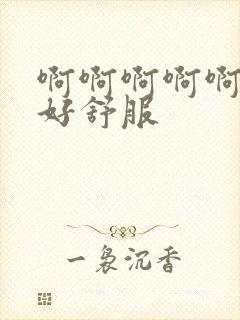 啊啊啊啊啊
好舒服
一袅沉香